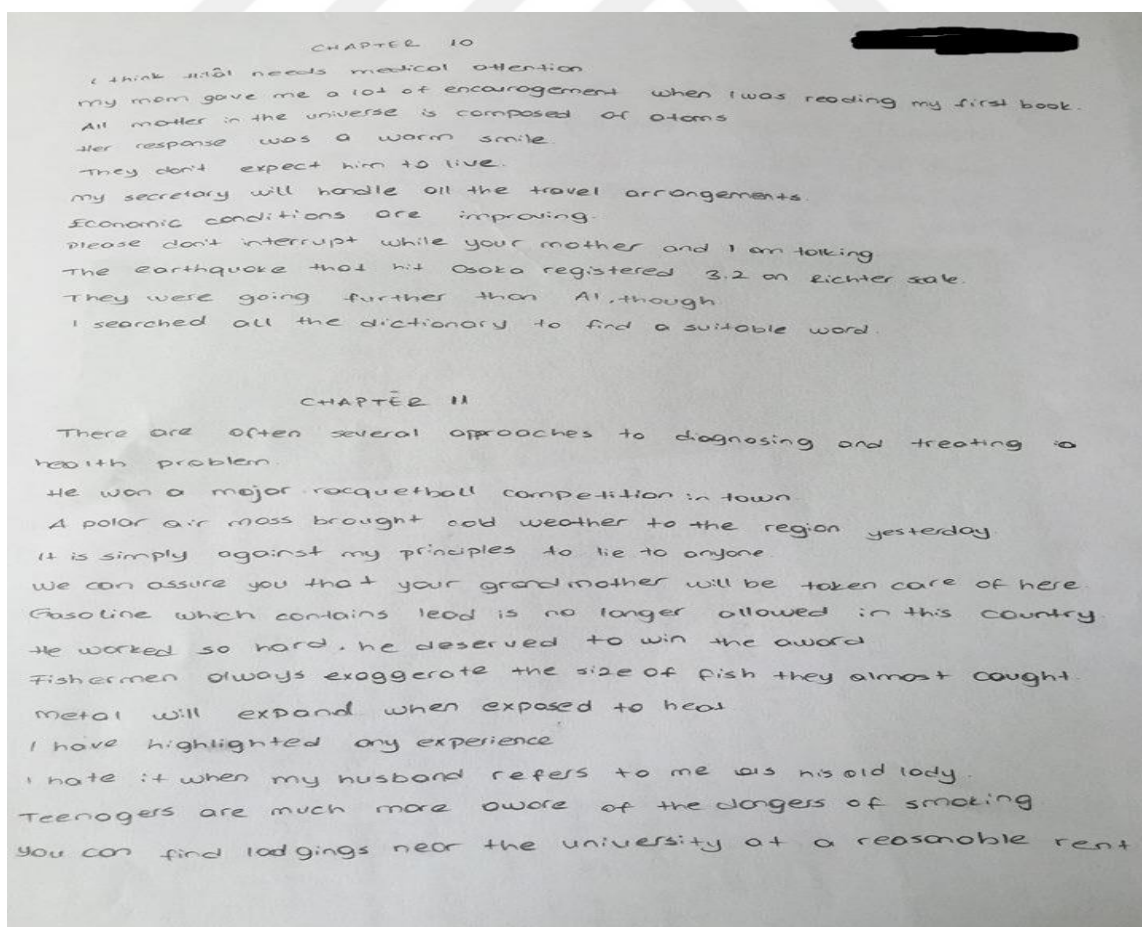 CHAPTER 10
I think Hilâl needs medical attention
my mom gave me a lot of encouragement when I was reading my first book.
All matter in the universe is composed of atoms
Her response was a warm smile.
They don't expect him to live.
my secretary will handle all the travel arrangements.
Economic conditions are improving.
Please don't interrupt while your mother and I am talking
The earthquake that hit Osaka registered 3.2 on Richter scale.
They were going further than Al, though
I searched all the dictionary to find a suitable word.
CHAPTER 11
There are often several approaches to diagnosing and treating a
health problem.
He won a major racquetball competition in town.
A polar air mass brought cold weather to the region yesterday.
It is simply against my principles to lie to anyone
we can assure you that your grandmother will be taken care of here.
Gasoline which contains lead is no longer allowed in this country.
He worked so hard, he deserved to win the award
Fishermen always exaggerate the size of fish they almost caught.
metal will expand when exposed to heat
I have highlighted any experience
I hate it when my husband refers to me as his old lady.
Teenagers are much more aware of the dangers of smoking
you can find lodgings near the university at a reasonable rent